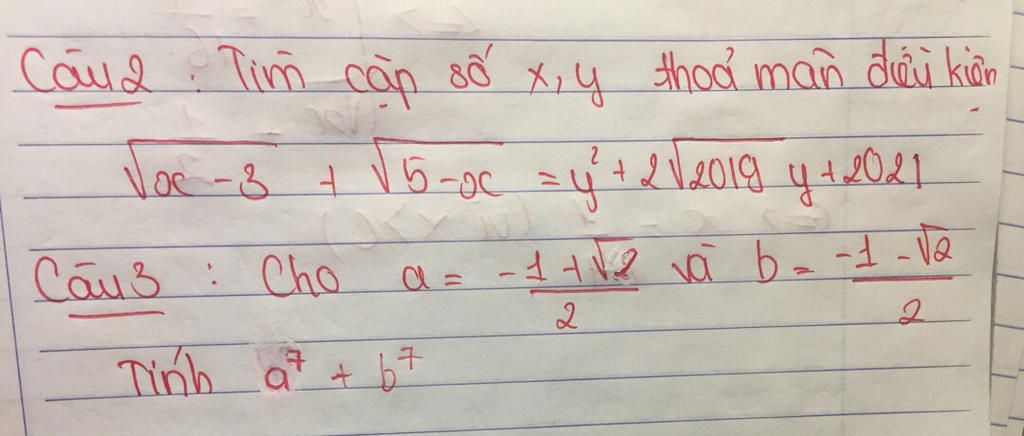 Câu 2 : Tìm cặp số x, y thoả mãn điều kiện
√(x - 3) + √(5 - x) = y² + 2√2019 y + 2021
Câu 3 : Cho a = (-1 + √2)/2 và b = (-1 - √2)/2
Tính a⁷ + b⁷